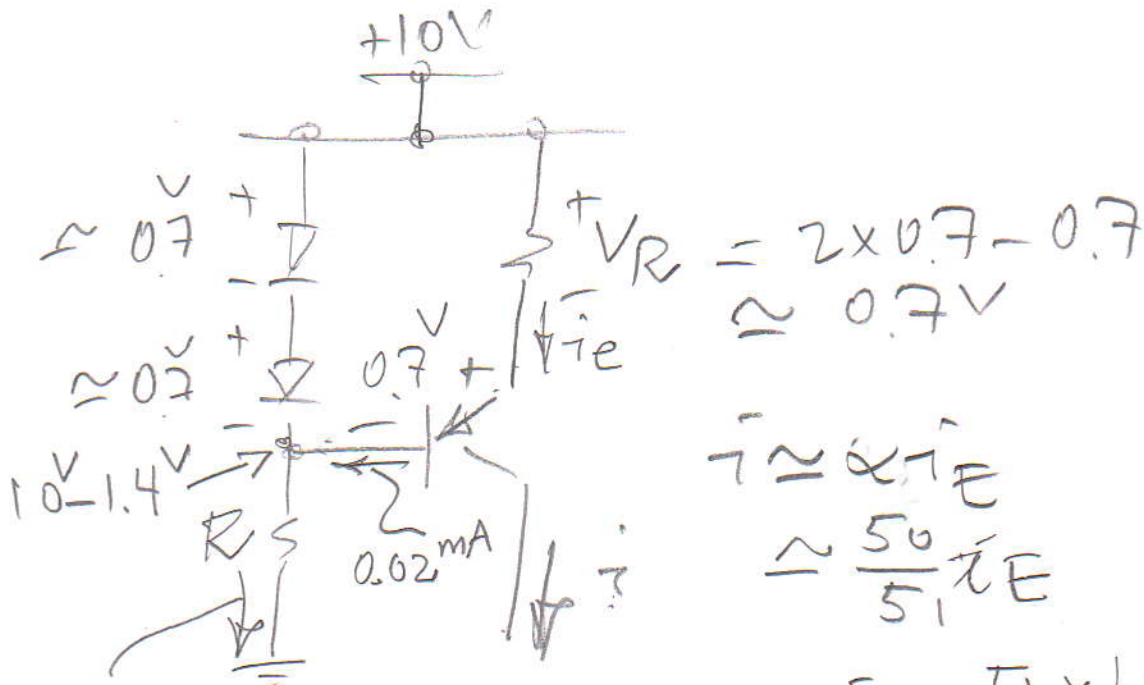 +10V
≃ 0.7V + -
+ V_R - = 2×0.7 - 0.7
≃ 0.7V
i_e
≃ 0.7V + -
0.7V + -
10V - 1.4V
R
0.02 mA
i
i ≃ α i_E
≃ 50/51 i_E